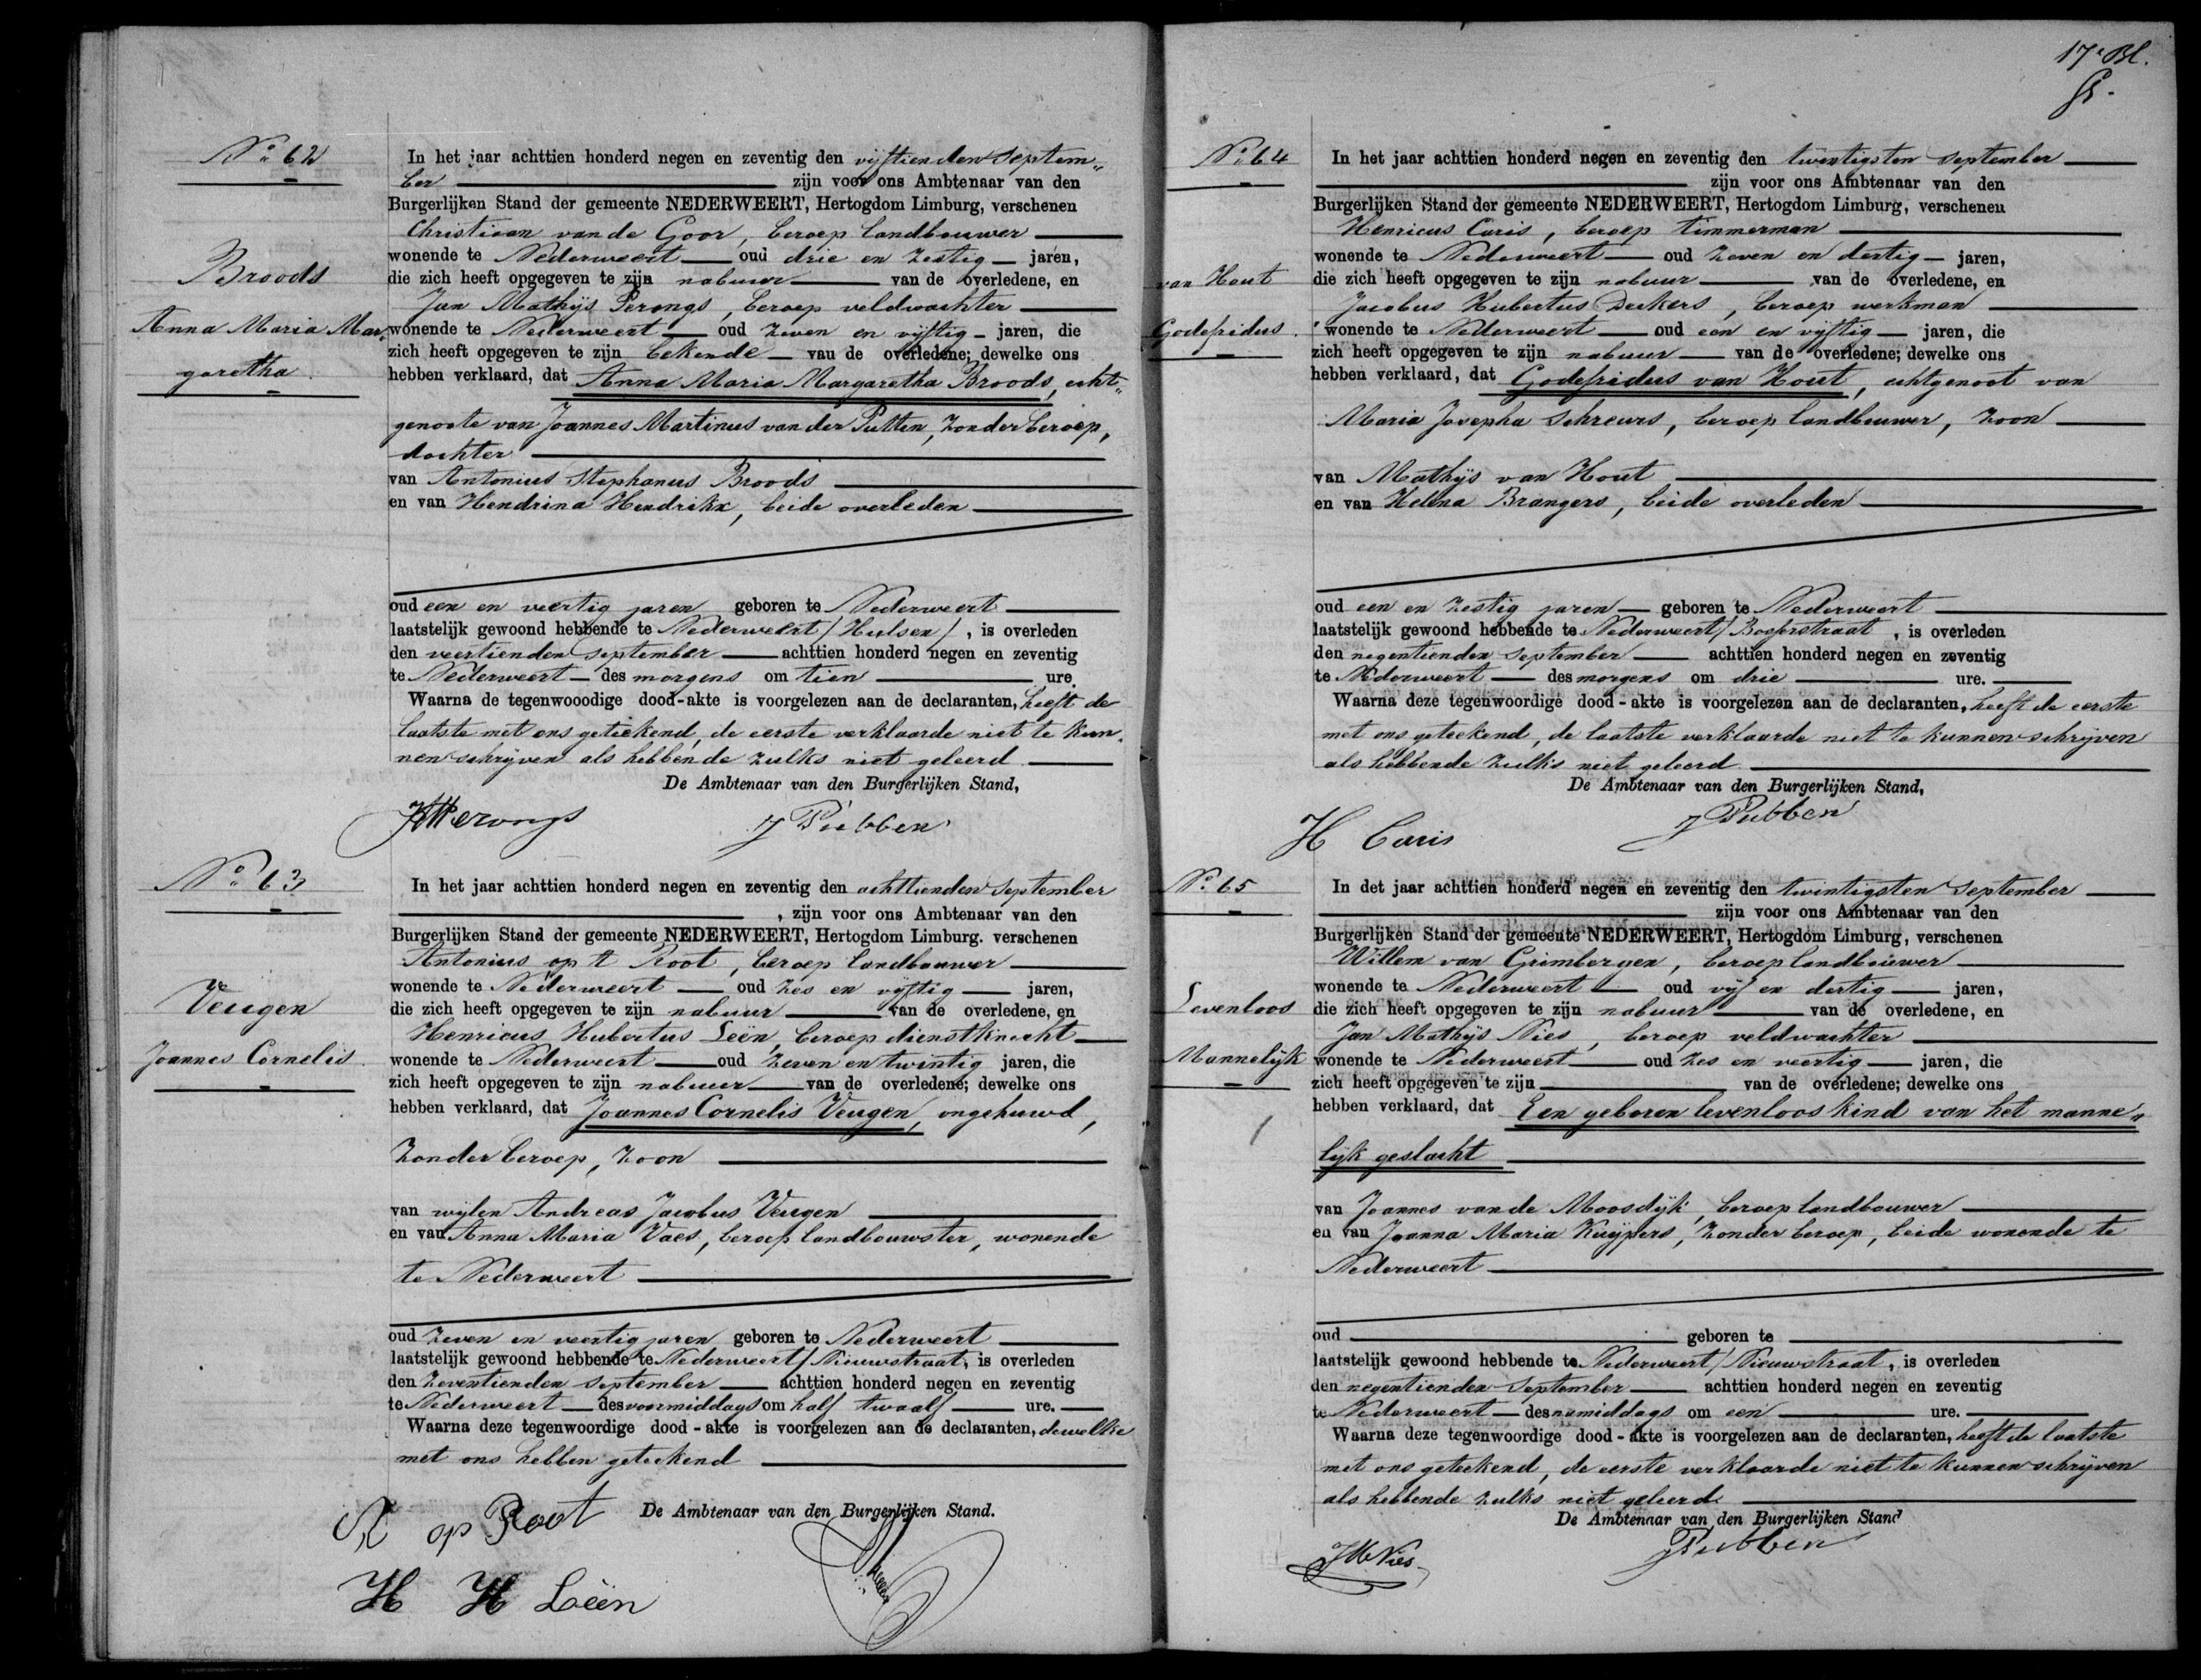 No. 62
Broods
Anna Maria Mar„
garetha.
In het jaar achttien honderd negen en zeventig den vijftienden septem„
ber zijn voor ons Ambtenaar van den
Burgerlijken Stand der gemeente NEDERWEERT, Hertogdom Limburg, verschenen
Christiaan van de Goor, beroep landbouwer
wonende te Nederweert oud drie en zestig jaren,
die zich heeft opgegeven te zijn nabuur van de overledene, en
Jan Mathijs Perongs, beroep veldwachter
wonende te Nederweert oud zeven en vijftig jaren, die
zich heeft opgegeven te zijn bekende van de overledene; dewelke ons
hebben verklaard, dat Anna Maria Margaretha Broods, echt„
genoote van Joannes Martinus van der Putten, zonder beroep,
dochter
van Antonius Stephanus Broods
en van Hendrina Hendrikx, beide overleden
oud een en veertig jaren geboren te Nederweert
laatstelijk gewoond hebbende te Nederweert / Hulsen /, is overleden
den veertienden september achttien honderd negen en zeventig
te Nederweert des morgens om tien ure.
Waarna de tegenwooodige dood-akte is voorgelezen aan de declaranten, heeft de
laatste met ons geteekend, de eerste verklaarde niet te kun„
nen schrijven als hebbende zulks niet geleerd.
De Ambtenaar van den Burgerlijken Stand,
JMPerongs J Pubben
No. 63
Veugen
Joannes Cornelis
In het jaar achttien honderd negen en zeventig den achttienden september
, zijn voor ons Ambtenaar van den
Burgerlijken Stand der gemeente NEDERWEERT, Hertogdom Limburg. verschenen
Antonius op 't Root, beroep landbouwer
wonende te Nederweert oud zes en vijftig jaren,
die zich heeft opgegeven te zijn nabuur van de overledene, en
Henricus Hubertus Leën, beroep dienstknecht
wonende te Nederweert oud zeven en twintig jaren, die
zich heeft opgegeven te zijn nabuur van de overledene; dewelke ons
hebben verklaard, dat Joannes Cornelis Veugen, ongehuwd,
zonder beroep, zoon
van wijlen Andreas Jacobus Veugen
en van Anna Maria Vaes, beroep landbouwster, wonende
te Nederweert
oud zeven en veertig jaren geboren te Nederweert
laatstelijk gewoond hebbende te Nederweert / Nieuwstraat, is overleden
den zeventienden september achttien honderd negen en zeventig
te Nederweert des voormiddags om half twaalf ure.
Waarna deze tegenwoordige dood-akte is voorgelezen aan de declaranten, dewelke
met ons hebben geteekend
De Ambtenaar van den Burgerlijken Stand.
A op Root
H H Lëën
17e Bl.
No. 64
van Hout
Godefridus.
In het jaar achttien honderd negen en zeventig den twintigsten september
zijn voor ons Ambtenaar van den
Burgerlijken Stand der gemeente NEDERWEERT, Hertogdom Limburg, verschenen
Henricus Caris, beroep timmerman
wonende te Nederweert oud zeven en dertig jaren,
die zich heeft opgegeven te zijn nabuur van de overledene, en
Jacobus Hubertus Deckers, beroep werkman
wonende te Nederweert oud een en vijftig jaren, die
zich heeft opgegeven te zijn nabuur van de overledene; dewelke ons
hebben verklaard, dat Godefridus van Hout, echtgenoot van
Maria Josepha Schreurs, beroep landbouwer, zoon
van Mathijs van Hout
en van Helena Brangers, beide overleden
oud een en zestig jaren geboren te Nederweert
laatstelijk gewoond hebbende te Nederweert / Booserstraat, is overleden
den negentienden september achttien honderd negen en zeventig
te Nederweert des morgens om drie ure.
Waarna deze tegenwoordige dood-akte is voorgelezen aan de declaranten, heeft de eerste
met ons geteekend, de laatste verklaarde niet te kunnen schrijven
als hebbende zulks niet geleerd.
De Ambtenaar van den Burgerlijken Stand,
H Caris J Pubben
No. 65
Levenloos
Mannelijk
In det jaar achttien honderd negen en zeventig den twintigsten september
zijn voor ons Ambtenaar van den
Burgerlijken Stand der gemeente NEDERWEERT, Hertogdom Limburg, verschenen
Willem van Grimbergen, beroep landbouwer
wonende te Nederweert oud vijf en dertig jaren,
die zich heeft opgegeven te zijn nabuur van de overledene, en
Jan Mathijs Nies, beroep veldwachter
wonende te Nederweert oud zes en veertig jaren, die
zich heeft opgegeven te zijn van de overledene; dewelke ons
hebben verklaard, dat Een geboren levenloos kind van het manne„
lijk geslacht
van Joannes van de Moosdijk, beroep landbouwer
en van Joanna Maria Kuijpers, zonder beroep, beide wonende te
Nederweert
oud geboren te
laatstelijk gewoond hebbende te Nederweert / Nieuwstraat, is overleden
den negentienden september achttien honderd negen en zeventig
te Nederweert des namiddags om een ure.
Waarna deze tegenwoordige dood-akte is voorgelezen aan de declaranten, heeft de laatste
met ons geteekend, de eerste verklaarde niet te kunnen schrijven
als hebbende zulks niet geleerd.
De Ambtenaar van den Burgerlijken Stand
JM Nies J Pubben